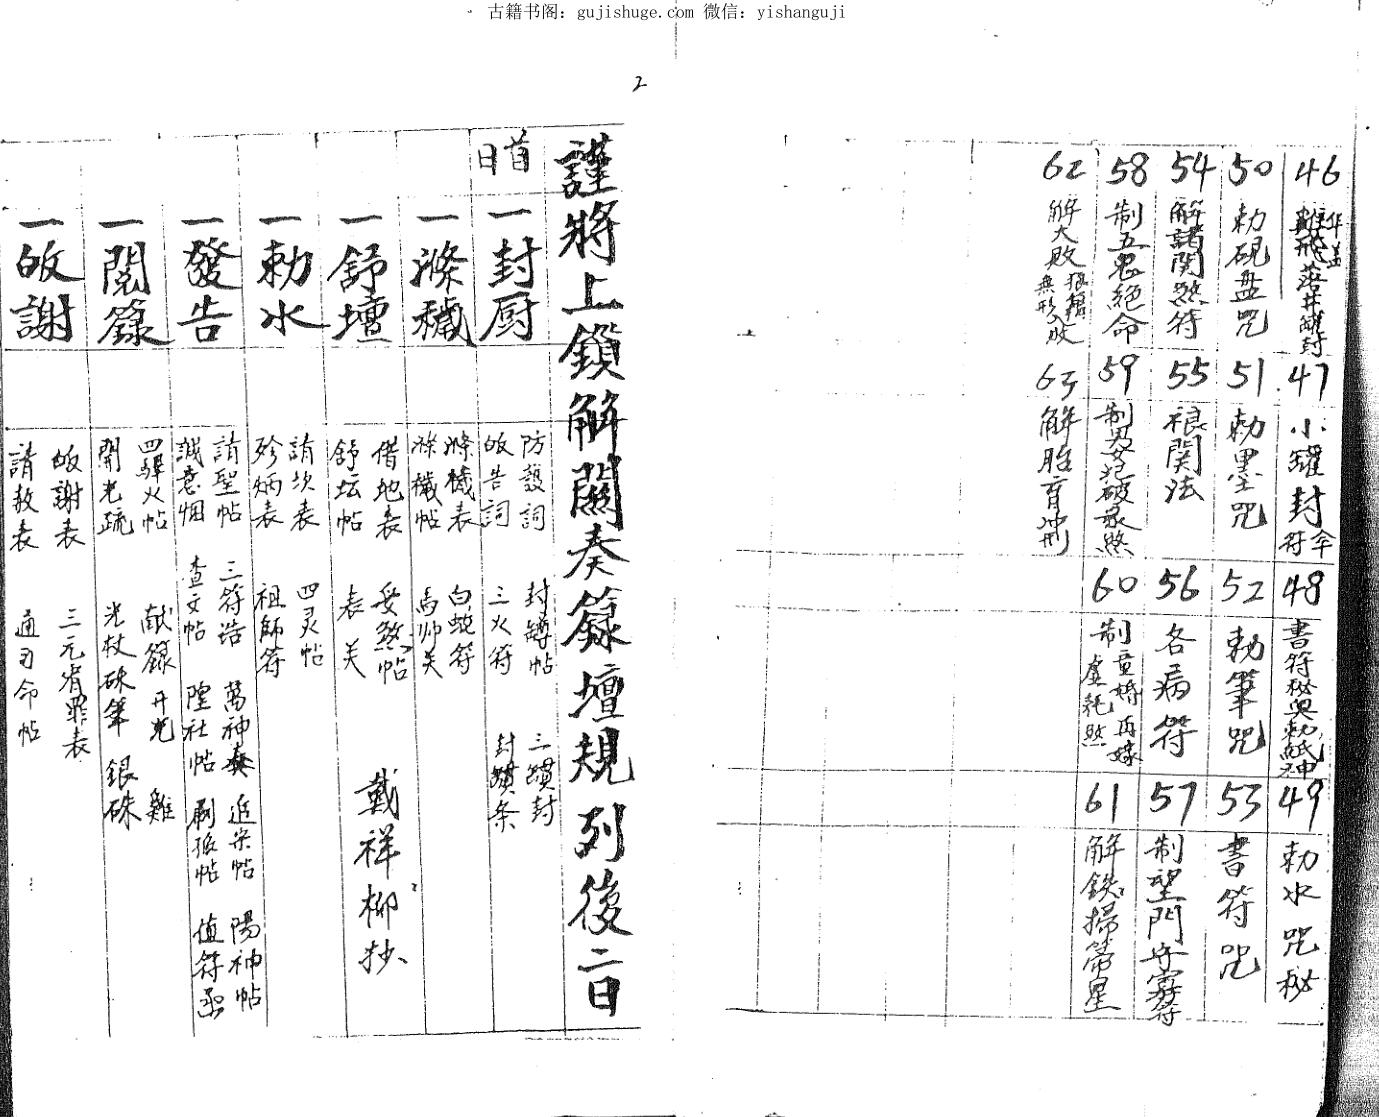 古籍书阁：gujishuge.com 微信：yishanguji
2
46
華蓋
飛落井罐封
47
小罐封
伞符
48
書符秘與勅紙神
49
勅水咒秘
50
勅硯盘咒
51
勅墨咒
52
勅筆咒
53
書符咒
54
解諸関煞符
55
禳関法
56
各病符
57
制望門守寡符
58
制五鬼絕命
59
60
制重婚再嫁
虚耗煞
61
解鉄掃箒星
62
解大敗
狼籍
無形敗
63
解胎育冲刑
謹將上鎖解關奏籙壇規列後二日
首日
一封厨
防護詞
皈告詞
封罇帖
三火符
三
封
封
条
一滌穢
滌穢表
滌穢帖
白蛇符
馬帅关
一舒壇
借地表
舒坛帖
妥煞帖
表关
戴祥柳抄
一勅水
請坎表
殄炳表
四灵帖
祖師符
一發告
請聖帖
三符诰
萬神奏
追宋帖
陽神帖
誠意烟
查文帖
隍社帖
值符
一閱籙
四驛火帖
献籙开光
雞
開光疏
光杖硃筆
銀硃
一皈謝
皈謝表
三元宥罪表
請赦表
通司命帖